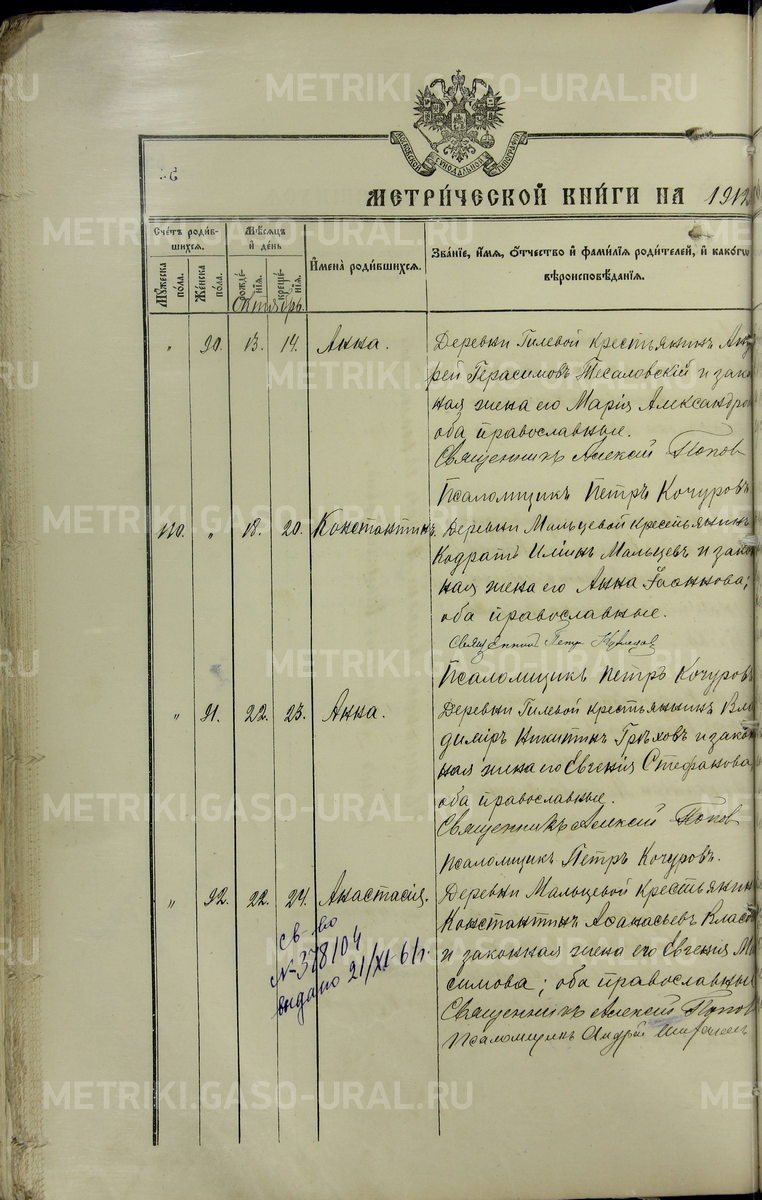 METRIKI.GASO-URAL.RU
МОСКОВСКОЙ СѴНОДАЛЬНОЙ ТИПОГРАФІИ
МЕТРИ́ЧЕСКОЙ КНИ́ГИ НА 1912
Сче́тъ роди́в-
шихся.
Мꙋ́жеска по́ла.
Же́нска по́ла.
Мѣ́сяцъ и҆ де́нь
рожде́нїя.
креще́нїя.
Октябрь.
И҆мена̀ роди́вшихся.
Зва́нїе, и҆́мя, ѻ҆́тчество и҆ фами́лїя роди́телей, и҆ како́гѡ
вѣроисповѣ́данїя.
" 90. 13. 14. Анна. Деревни Гилевой крестьянинъ Анд
рей Герасимовъ и зако
ная жена его Марія Александро
оба православные.
Священникъ Алексій Попов
Псаломщикъ Петръ Кочуровъ
110. " 18. 20. Константинъ. Деревни Мальцевой крестьянинъ
Кодратъ Ильинъ Мальцевъ и зако
ная жена его Анна
оба православные.
Священник Петр
Псаломщикъ Петръ Кочуровъ
" 91. 22. 23. Анна. Деревни Гилевой крестьянинъ Вла
димiръ Никитинъ Грѣховъ и зако
ная жена его Евгенія Стефанова,
оба православные.
Священникъ Алексій Попов
Псаломщикъ Петръ Кочуровъ.
" 92. 22. 24. Анастасія. Деревни Мальцевой крестьянин
Константинъ Аѳанасьевъ Власо
и законная жена его Евгенія Ма
симова; оба православные
Священникъ Алексій Попов
Псаломщикъ Андрей
св-во
№ 378104
выдано 21/XI-61г.